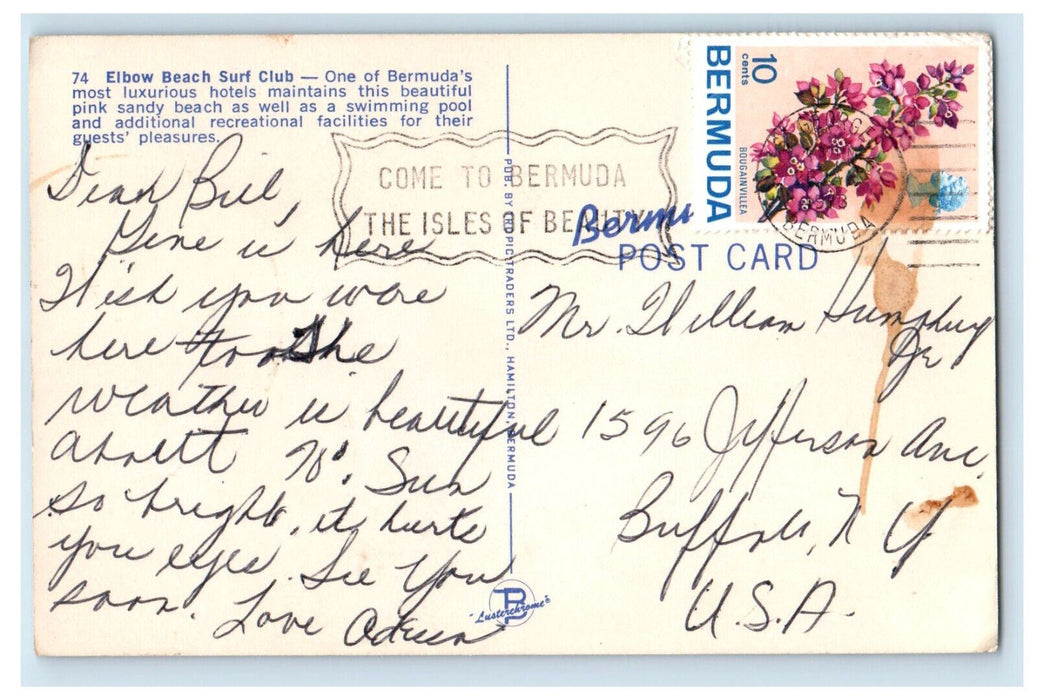 74 Elbow Beach Surf Club — One of Bermuda's
most luxurious hotels maintains this beautiful
pink sandy beach as well as a swimming pool
and additional recreational facilities for their
guests' pleasures.
Dear Bill,
Gene is here
Wish you were
here too The
weather is beautiful
about 70°. Sun
so bright, it hurts
you eyes. See You
soon. Love
COME TO BERMUDA
THE ISLES OF BEAUTY
PUB. BY TROPIC TRADERS LTD., HAMILTON, BERMUDA
"Lusterchrome"
10
cents
BERMUDA
BOUGAINVILLEA
BERMUDA
Bermu
POST CARD
Mr. William Humphrey
Jr
1596 Jefferson Ave.
Buffalo, N Y
U.S.A.